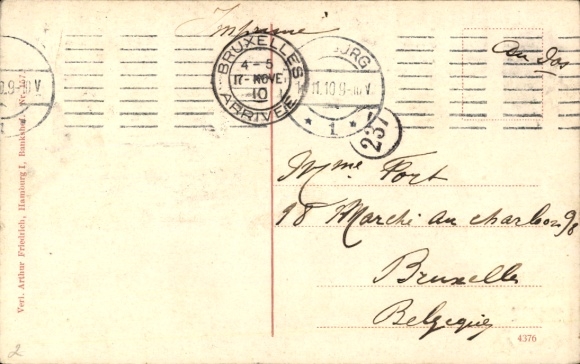 Imprimé
Au dos
BRUXELLES
4-5
17-NOVE
10
ARRIVÉE
BURG
11.10.9-10V
* 1 *
237
Mme Fort
98 Marché au charbon 98
Bruxelles
Belgique
Verl. Arthur Friedrich, Hamburg I,
4376
2